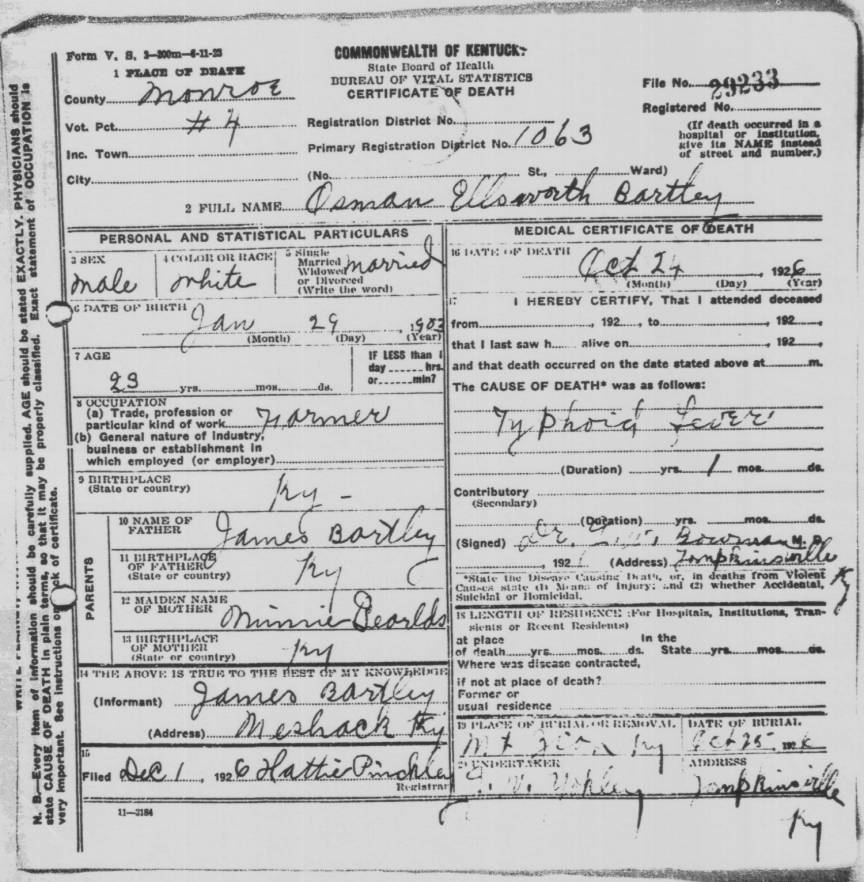 Form V. S. 3-300m-4-11-23
COMMONWEALTH OF KENTUCKY
State Board of Health
BUREAU OF VITAL STATISTICS
CERTIFICATE OF DEATH
1 PLACE OF DEATH
County Monroe
Vot. Pct. #4
Inc. Town
City
Registration District No.
Primary Registration District No. 1063
(No. St., Ward)
File No. 29233
Registered No.
(If death occurred in a
hospital or institution,
give its NAME instead
of street and number.)
2 FULL NAME Osman Ellsworth Bartley
PERSONAL AND STATISTICAL PARTICULARS
3 SEX
Male
4 COLOR OR RACE
White
5 Single
Married
Widowed
or Divorced
(Write the word)
Married
6 DATE OF BIRTH
Jan 29 1903
(Month) (Day) (Year)
7 AGE
23 yrs. mos. ds.
IF LESS than 1
day hrs.
or min?
8 OCCUPATION
(a) Trade, profession or
particular kind of work Farmer
(b) General nature of industry,
business or establishment in
which employed (or employer)
9 BIRTHPLACE
(State or country)
Ky -
PARENTS
10 NAME OF
FATHER James Bartley
11 BIRTHPLACE
OF FATHER
(State or country) Ky
12 MAIDEN NAME
OF MOTHER Minnie
13 BIRTHPLACE
OF MOTHER
(State or country) Ky
14 THE ABOVE IS TRUE TO THE BEST OF MY KNOWLEDGE
(Informant) James Bartley
(Address) Meshack Ky
15
Filed Dec 1, 1926 Hattie Pinckley
Registrar
11-3184
MEDICAL CERTIFICATE OF DEATH
16 DATE OF DEATH
Oct 24, 1926
(Month) (Day) (Year)
17 I HEREBY CERTIFY, That I attended deceased
from , 192 , to , 192 ,
that I last saw h alive on , 192 ,
and that death occurred on the date stated above at m.
The CAUSE OF DEATH* was as follows:
Typhoid Fever
(Duration) yrs. 1 mos. ds.
Contributory
(Secondary)
(Duration) yrs. mos. ds.
(Signed) Dr. Bowman M. D.
, 192 (Address) Tompkinsville
Ky
*State the Disease Causing Death, or, in deaths from Violent
Causes state (1) Means of Injury; and (2) whether Accidental,
Suicidal or Homicidal.
18 LENGTH OF RESIDENCE (For Hospitals, Institutions, Tran-
sients or Recent Residents)
at place In the
of death yrs. mos. ds. State yrs. mos. ds.
Where was disease contracted,
if not at place of death?
Former or
usual residence
19 PLACE OF BURIAL OR REMOVAL
Mt Zion Ky
DATE OF BURIAL
Oct 25, 1926
20 UNDERTAKER
Yokley
ADDRESS
Tompkinsville
Ky
N. B.—Every item of information should be carefully supplied. AGE should be stated EXACTLY. PHYSICIANS should
state CAUSE OF DEATH in plain terms, so that it may be properly classified. Exact statement of OCCUPATION is
very important. See instructions on back of certificate.